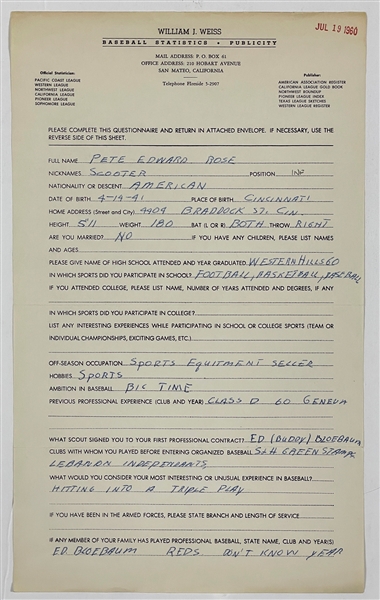 WILLIAM J. WEISS
JUL 19 1960
BASEBALL STATISTICS • PUBLICITY
MAIL ADDRESS: P. O. BOX 61
OFFICE ADDRESS: 210 HOBART AVENUE
SAN MATEO, CALIFORNIA
Telephone Fireside 5-2907
Official Statistician:
PACIFIC COAST LEAGUE
WESTERN LEAGUE
NORTHWEST LEAGUE
CALIFORNIA LEAGUE
PIONEER LEAGUE
SOPHOMORE LEAGUE
Publisher:
AMERICAN ASSOCIATION REGISTER
CALIFORNIA LEAGUE GOLD BOOK
NORTHWEST ROUNDUP
PIONEER LEAGUE INDEX
TEXAS LEAGUE SKETCHES
WESTERN LEAGUE REGISTER
PLEASE COMPLETE THIS QUESTIONNAIRE AND RETURN IN ATTACHED ENVELOPE. IF NECESSARY, USE THE
REVERSE SIDE OF THIS SHEET.
FULL NAME PETE EDWARD ROSE
NICKNAMES SCOOTER POSITION INF
NATIONALITY OR DESCENT AMERICAN
DATE OF BIRTH 4-14-41 PLACE OF BIRTH CINCINNATI
HOME ADDRESS (Street and City) 4404 BRADDOCK ST. CIN.
HEIGHT 5'11 WEIGHT 180 BAT (L OR R) BOTH THROW RIGHT
ARE YOU MARRIED? NO IF YOU HAVE ANY CHILDREN, PLEASE LIST NAMES
AND AGES
PLEASE GIVE NAME OF HIGH SCHOOL ATTENDED AND YEAR GRADUATED WESTERN HILLS 60
IN WHICH SPORTS DID YOU PARTICIPATE IN SCHOOL? FOOTBALL, BASKETBALL, BASEBALL
IF YOU ATTENDED COLLEGE, PLEASE LIST NAME, NUMBER OF YEARS ATTENDED AND DEGREES, IF ANY
IN WHICH SPORTS DID YOU PARTICIPATE IN COLLEGE?
LIST ANY INTERESTING EXPERIENCES WHILE PARTICIPATING IN SCHOOL OR COLLEGE SPORTS (TEAM OR
INDIVIDUAL CHAMPIONSHIPS, EXCITING GAMES, ETC.)
OFF-SEASON OCCUPATION SPORTS EQUITMENT SELLER
HOBBIES SPORTS
AMBITION IN BASEBALL BIG TIME
PREVIOUS PROFESSIONAL EXPERIENCE (CLUB AND YEAR) CLASS D 60 GENEVA
WHAT SCOUT SIGNED YOU TO YOUR FIRST PROFESSIONAL CONTRACT? ED (BUDDY) BLOEBAUM
CLUBS WITH WHOM YOU PLAYED BEFORE ENTERING ORGANIZED BASEBALL S&H GREEN STAMPS
LEBANON INDEPENDANTS
WHAT WOULD YOU CONSIDER YOUR MOST INTERESTING OR UNUSUAL EXPERIENCE IN BASEBALL?
HITTING INTO A TRIPLE PLAY
IF YOU HAVE BEEN IN THE ARMED FORCES, PLEASE STATE BRANCH AND LENGTH OF SERVICE
IF ANY MEMBER OF YOUR FAMILY HAS PLAYED PROFESSIONAL BASEBALL, STATE NAME, CLUB AND YEAR(S)
ED. BLOEBAUM REDS DON'T KNOW YEAR